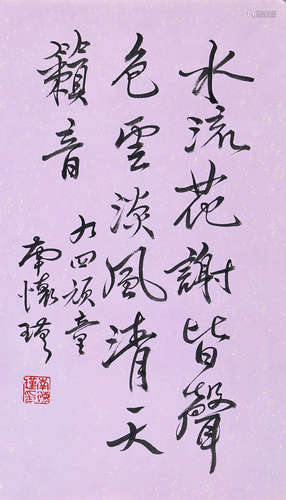 水流花謝皆聲
色雲淡風清天
籟音
九四頑童
南懷瑾